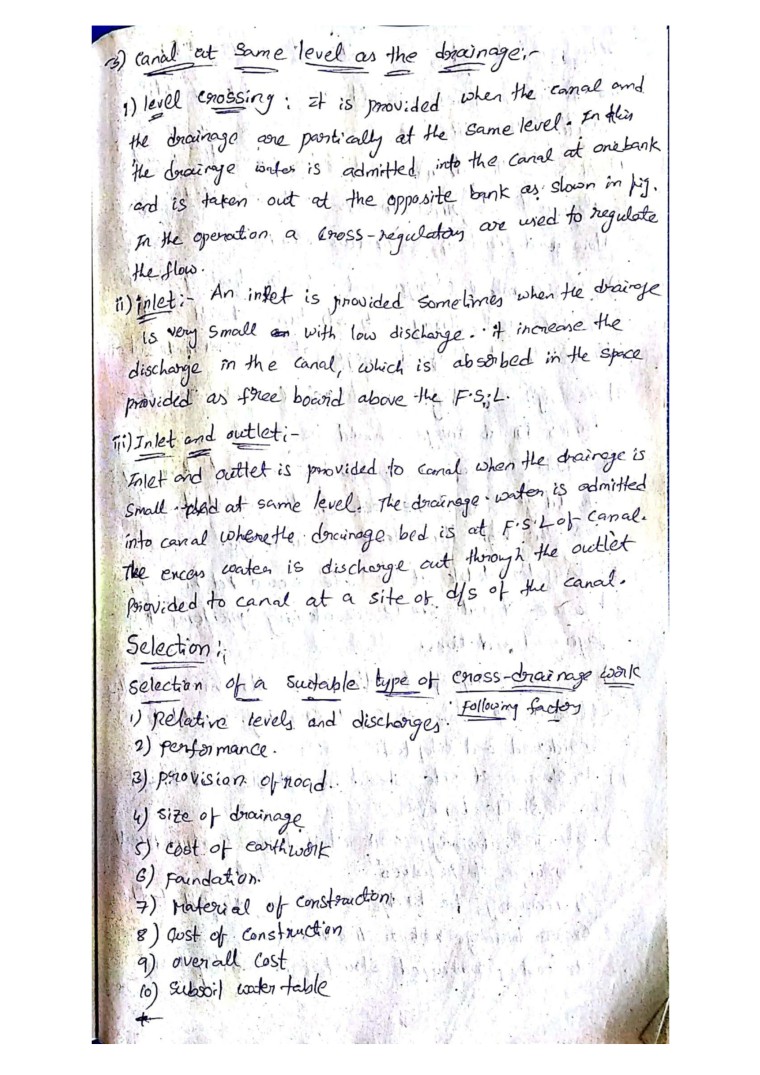 3) Canal at same level as the drainage:-
1) level crossing : It is provided when the canal and
the drainage are partically at the same level. In this
the drainage water is admitted into the canal at one bank
and is taken out at the opposite bank as slown in fig.
In the operation a cross-regulators are used to regulate
the flow.
ii) inlet:- An inlet is provided sometimes when the drainage
is very small with low discharge. it increase the
discharge in the canal, which is absorbed in the space
provided as free board above the F.S.L.
iii) Inlet and outlet:-
Inlet and outlet is provided to canal when the drainage is
small at same level. The drainage water is admitted
into canal where the drainage bed is at F.S.L of canal.
The excess water is discharge out through the outlet
provided to canal at a site of d/s of the canal.
Selection:
Selection of a suitable type of cross-drainage work
following factors
1) Relative levels and discharges.
2) performance.
3) provision of road.
4) size of drainage
5) cost of earthwork
6) Foundation.
7) Material of construction.
8) Cost of construction
9) overall cost
10) subsoil water table